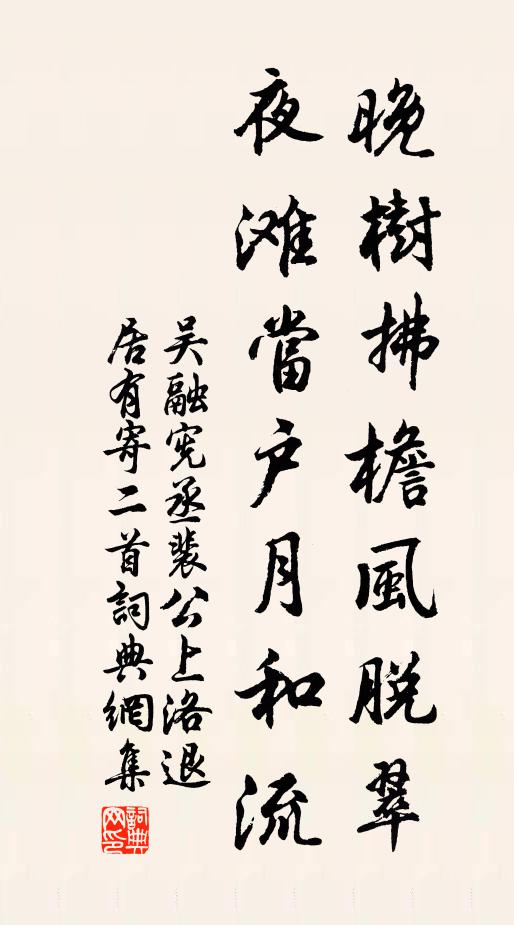 晚樹拂檐風脱翠
夜滩當户月和流
吴融宪丞裴公上洛退
居有寄二首詞典網集
詞典
网印